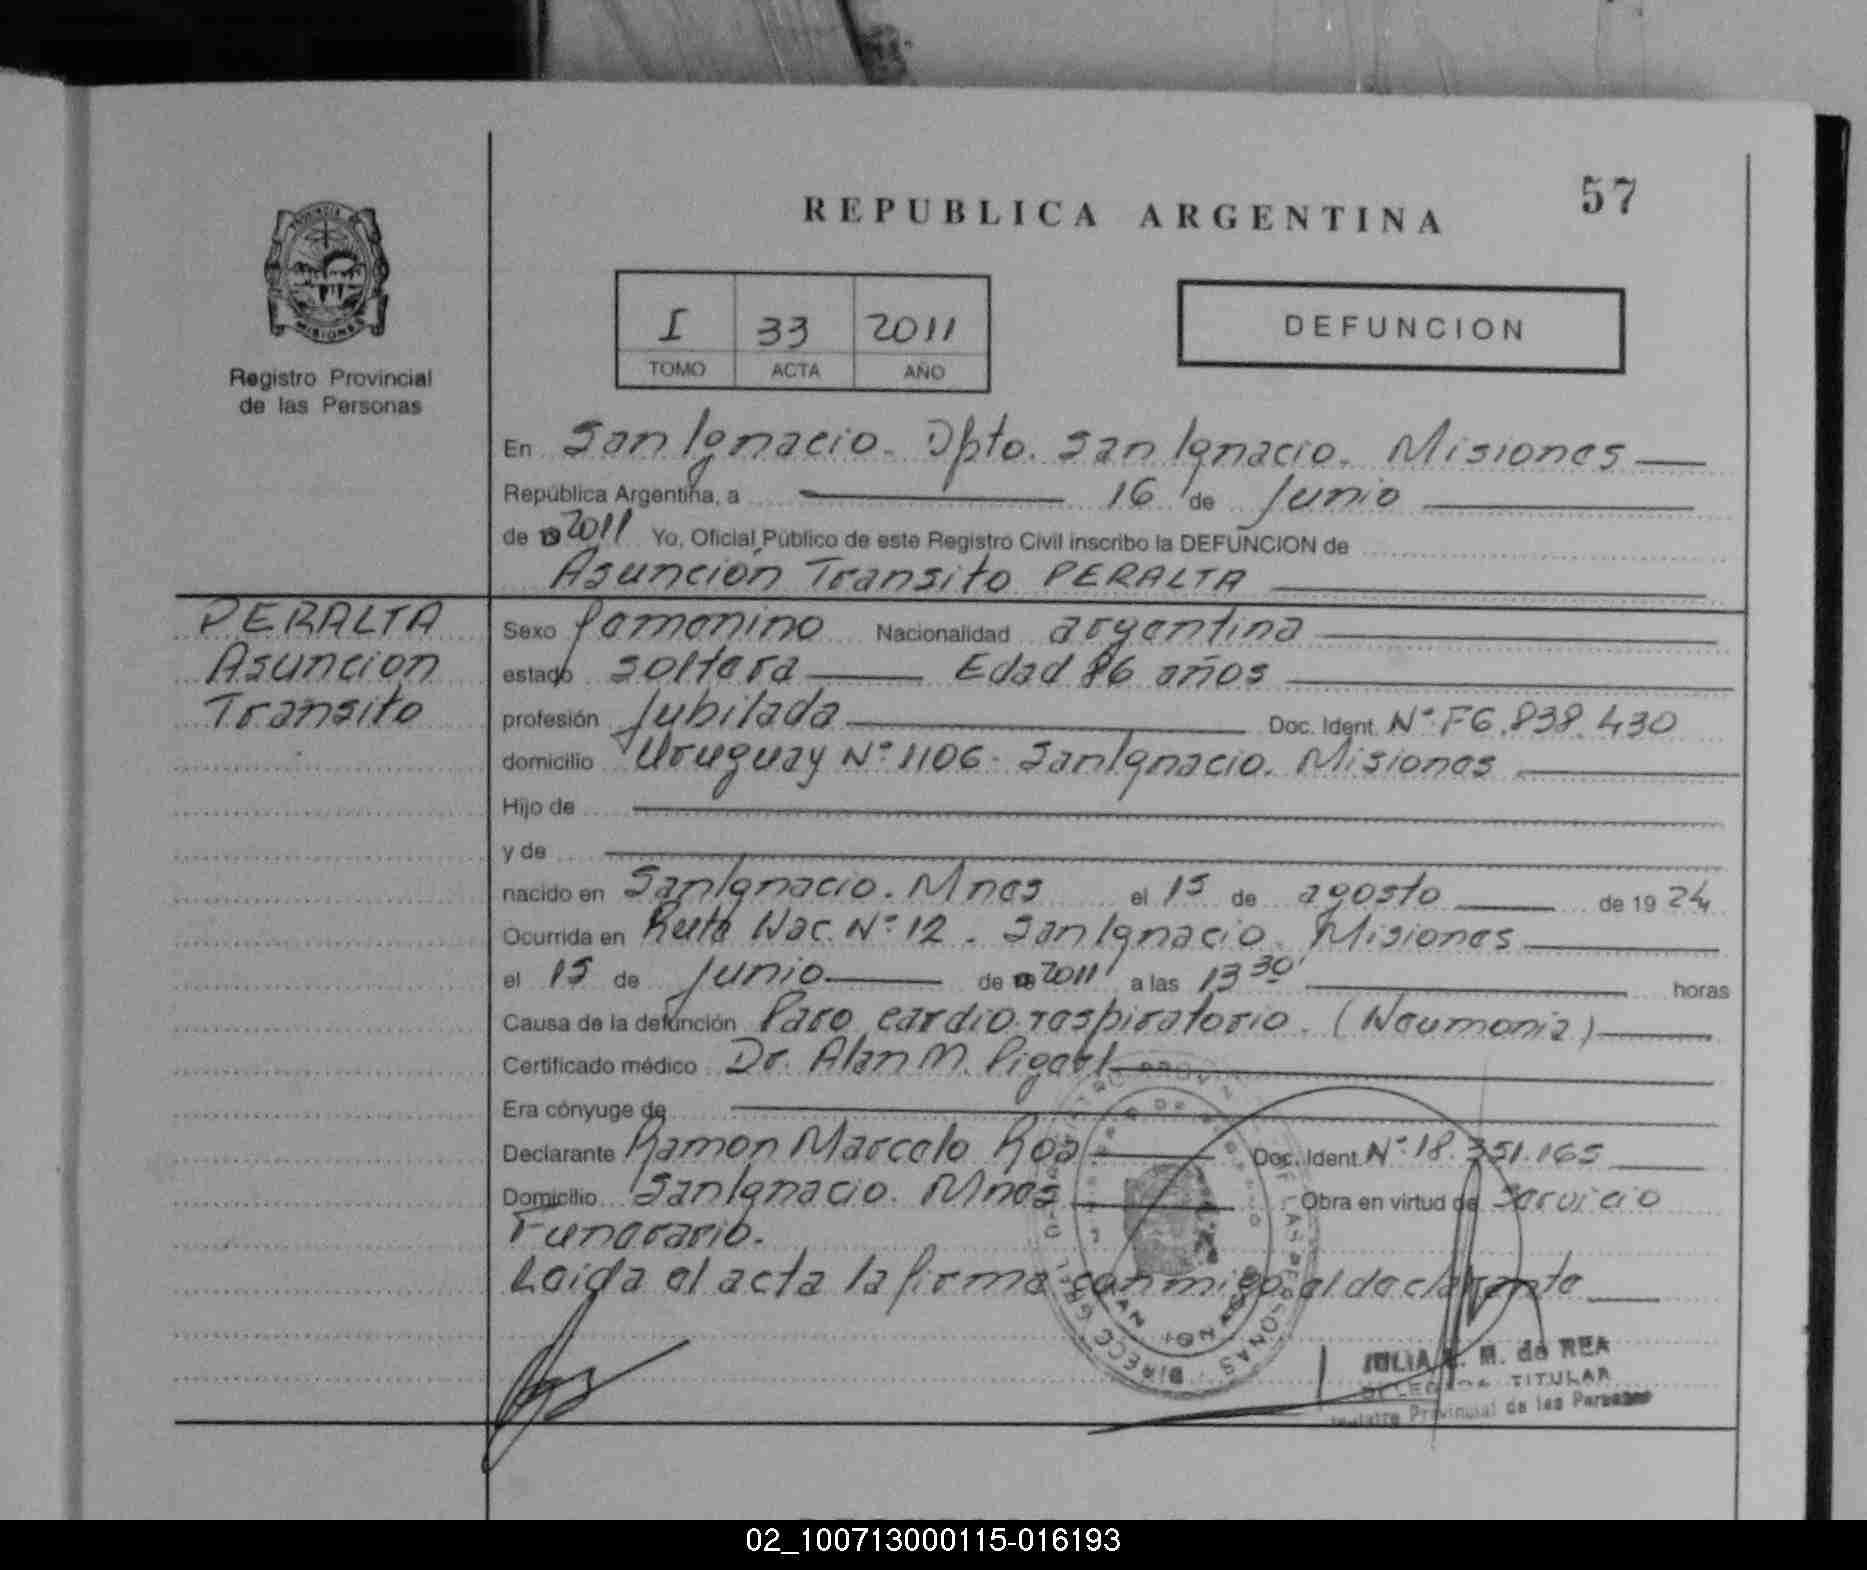 57
REPUBLICA ARGENTINA
MISIONES
Registro Provincial
de las Personas
I 33 2011
TOMO ACTA AÑO
DEFUNCION
En San Ignacio. Dpto. San Ignacio. Misiones
República Argentina, a 16 de Junio
de 2011 Yo, Oficial Público de este Registro Civil inscribo la DEFUNCION de
Asunción Transito PERALTA
PERALTA
Asuncion
Transito
Sexo femenino Nacionalidad argentina
estado soltera Edad 86 años
profesión Jubilada Doc. Ident. Nº F6.838.430
domicilio Uruguay Nº 1106. San Ignacio. Misiones
Hijo de
y de
nacido en San Ignacio. Mnes el 15 de agosto de 1924
Ocurrida en Ruta Nac. Nº 12. San Ignacio. Misiones
el 15 de Junio de 2011 a las 13 30 horas
Causa de la defunción Paro cardio respiratorio. (Neumonia)
Certificado médico Dr. Alan M.
Era cónyuge de
Declarante Ramon Marcelo Roa Doc. Ident. Nº 18.351.165
Domicilio San Ignacio. Mnes Obra en virtud de Servicio
Funerario.
Leida el acta la firma conmigo el declarante
JULIA M. de REA
DELEGADA TITULAR
Registro Provincial de las Personas
02_100713000115-016193